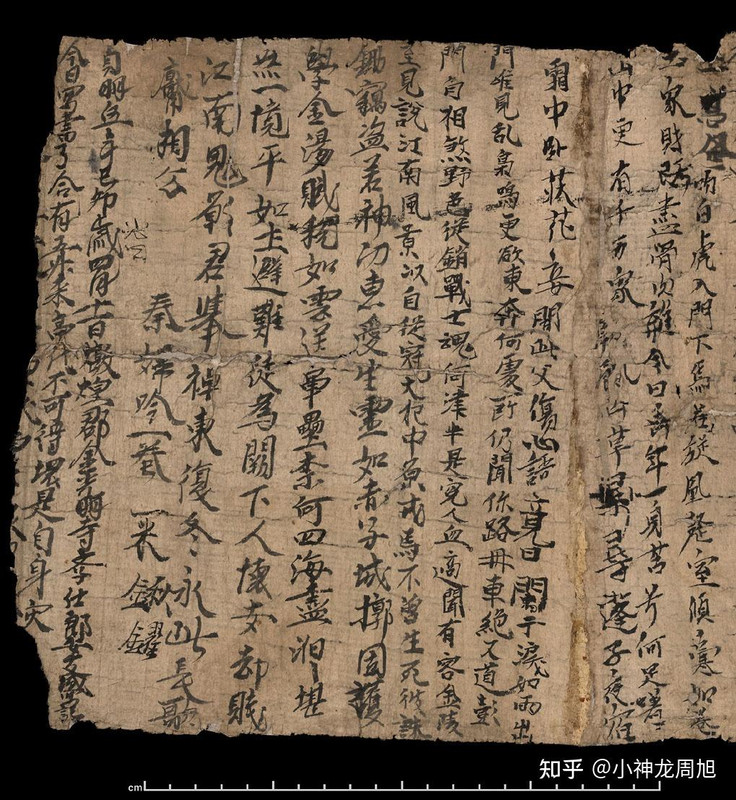 白虎入門下馬若旋風罄室傾囊如卷
土家財既盡骨肉離今日殘年一身苦兮何足嗟
山中更有千万家朝飢山草尋蓬子夜宿
霜中卧荻花妾聞此父傷心語竟日闌干淚如雨出
門唯見乱梟鳴更欲東奔何處所仍聞汴路舟車絕又道彭
門自相煞野色徒銷戰士魂何津半是冤人血適聞有客金陵
至見說江南風景以自從寇犬犯中原戎馬不曾生死彼誅
鋤竊盜若神功惠愛生靈如赤子城擳固護
學金湯賦稅如雲送軍壘柰何四海盡滔滔堪
然一境平如土避難徒為闕下人懷安却賤
江南鬼願君舉棹東復冬永此長歌
獻相公
秦婦吟一卷
貞明伍年己卯歲四月十一日燉煌郡金光明寺學仕郎安友盛寫訖
今日寫書了合有五升米高代不可得壞是自身灾
知乎 @小神龙周旭
cm